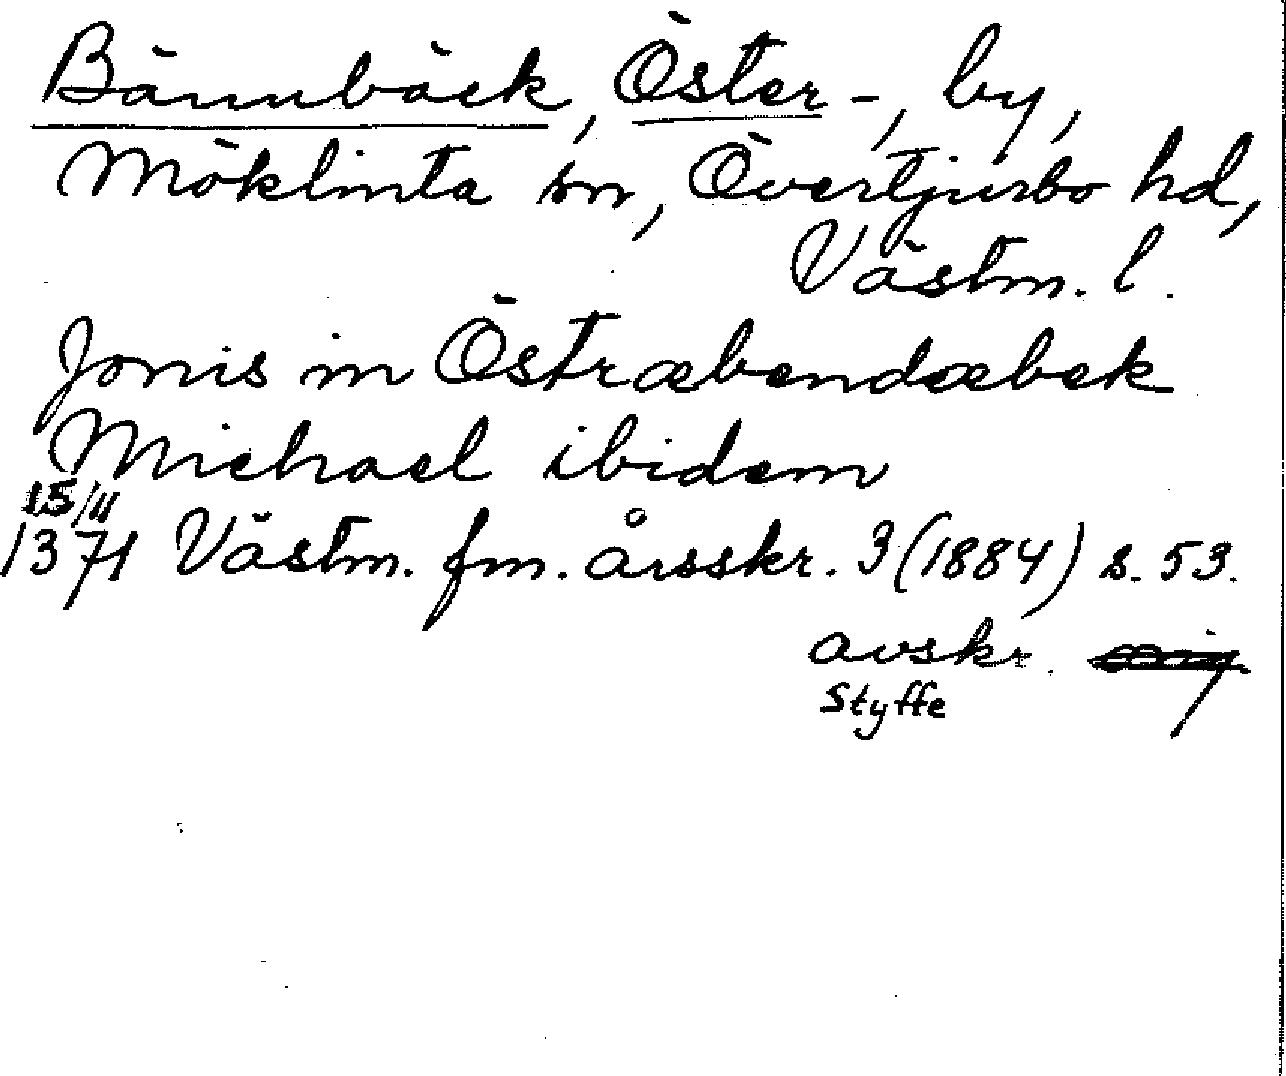 Bännbäck, Öster-, by,
Möklinta sn, Övertjurbo hd,
Västm. l.
Jonis in Östræbendæbek
Michael ibidem
15/11
1371 Västm. fm. årsskr. 3 (1884) s. 53.
avskr.
Styffe